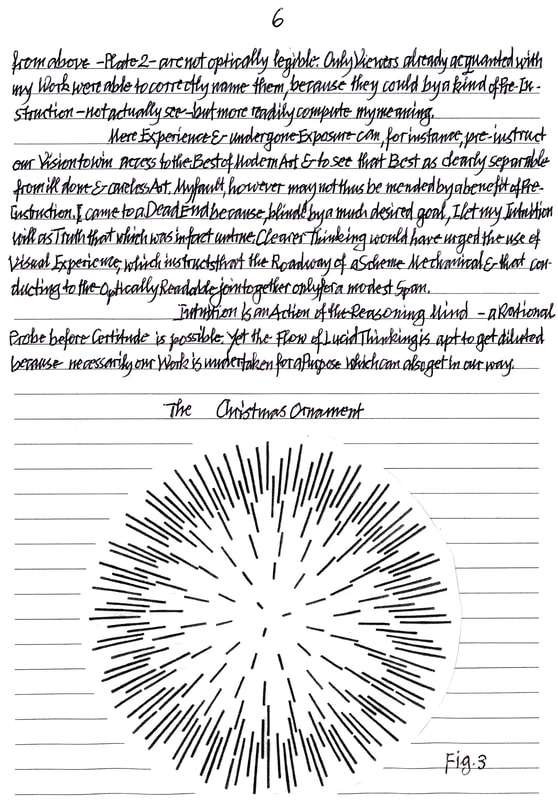 6
from above -Plate 2- are not optically legible. Only Viewers already acquanted with
my Work were able to correctly name them, because they could by a kind of Pre-In-
struction -not actually see- but more readily compute my meaning.
Mere Experience & undergone Exposure can, for instance, pre-instruct
our Vision to win access to the Best of Modern Art & to see that Best as clearly separable
from ill done & careless Art. My fault, however may not thus be mended by a benefit of Pre-
Instruction. I came to a Dead End because, blind by a much desired goal, I let my Intuition
will as Truth that which was in fact untrue. Clearer Thinking would have urged the use of
Visual Experience, which instructs that the Roadway of a Scheme Mechanical & that con-
ducting to the Optically Readable join together only for a modest Span.
Intuition is an Action of the Reasoning Mind - a Rational
Probe before Certitude is possible. Yet the Flow of Lucid Thinking is apt to get diluted
because necessarily our Work is undertaken for a Purpose which can also get in our way.
The Christmas Ornament
Fig.3